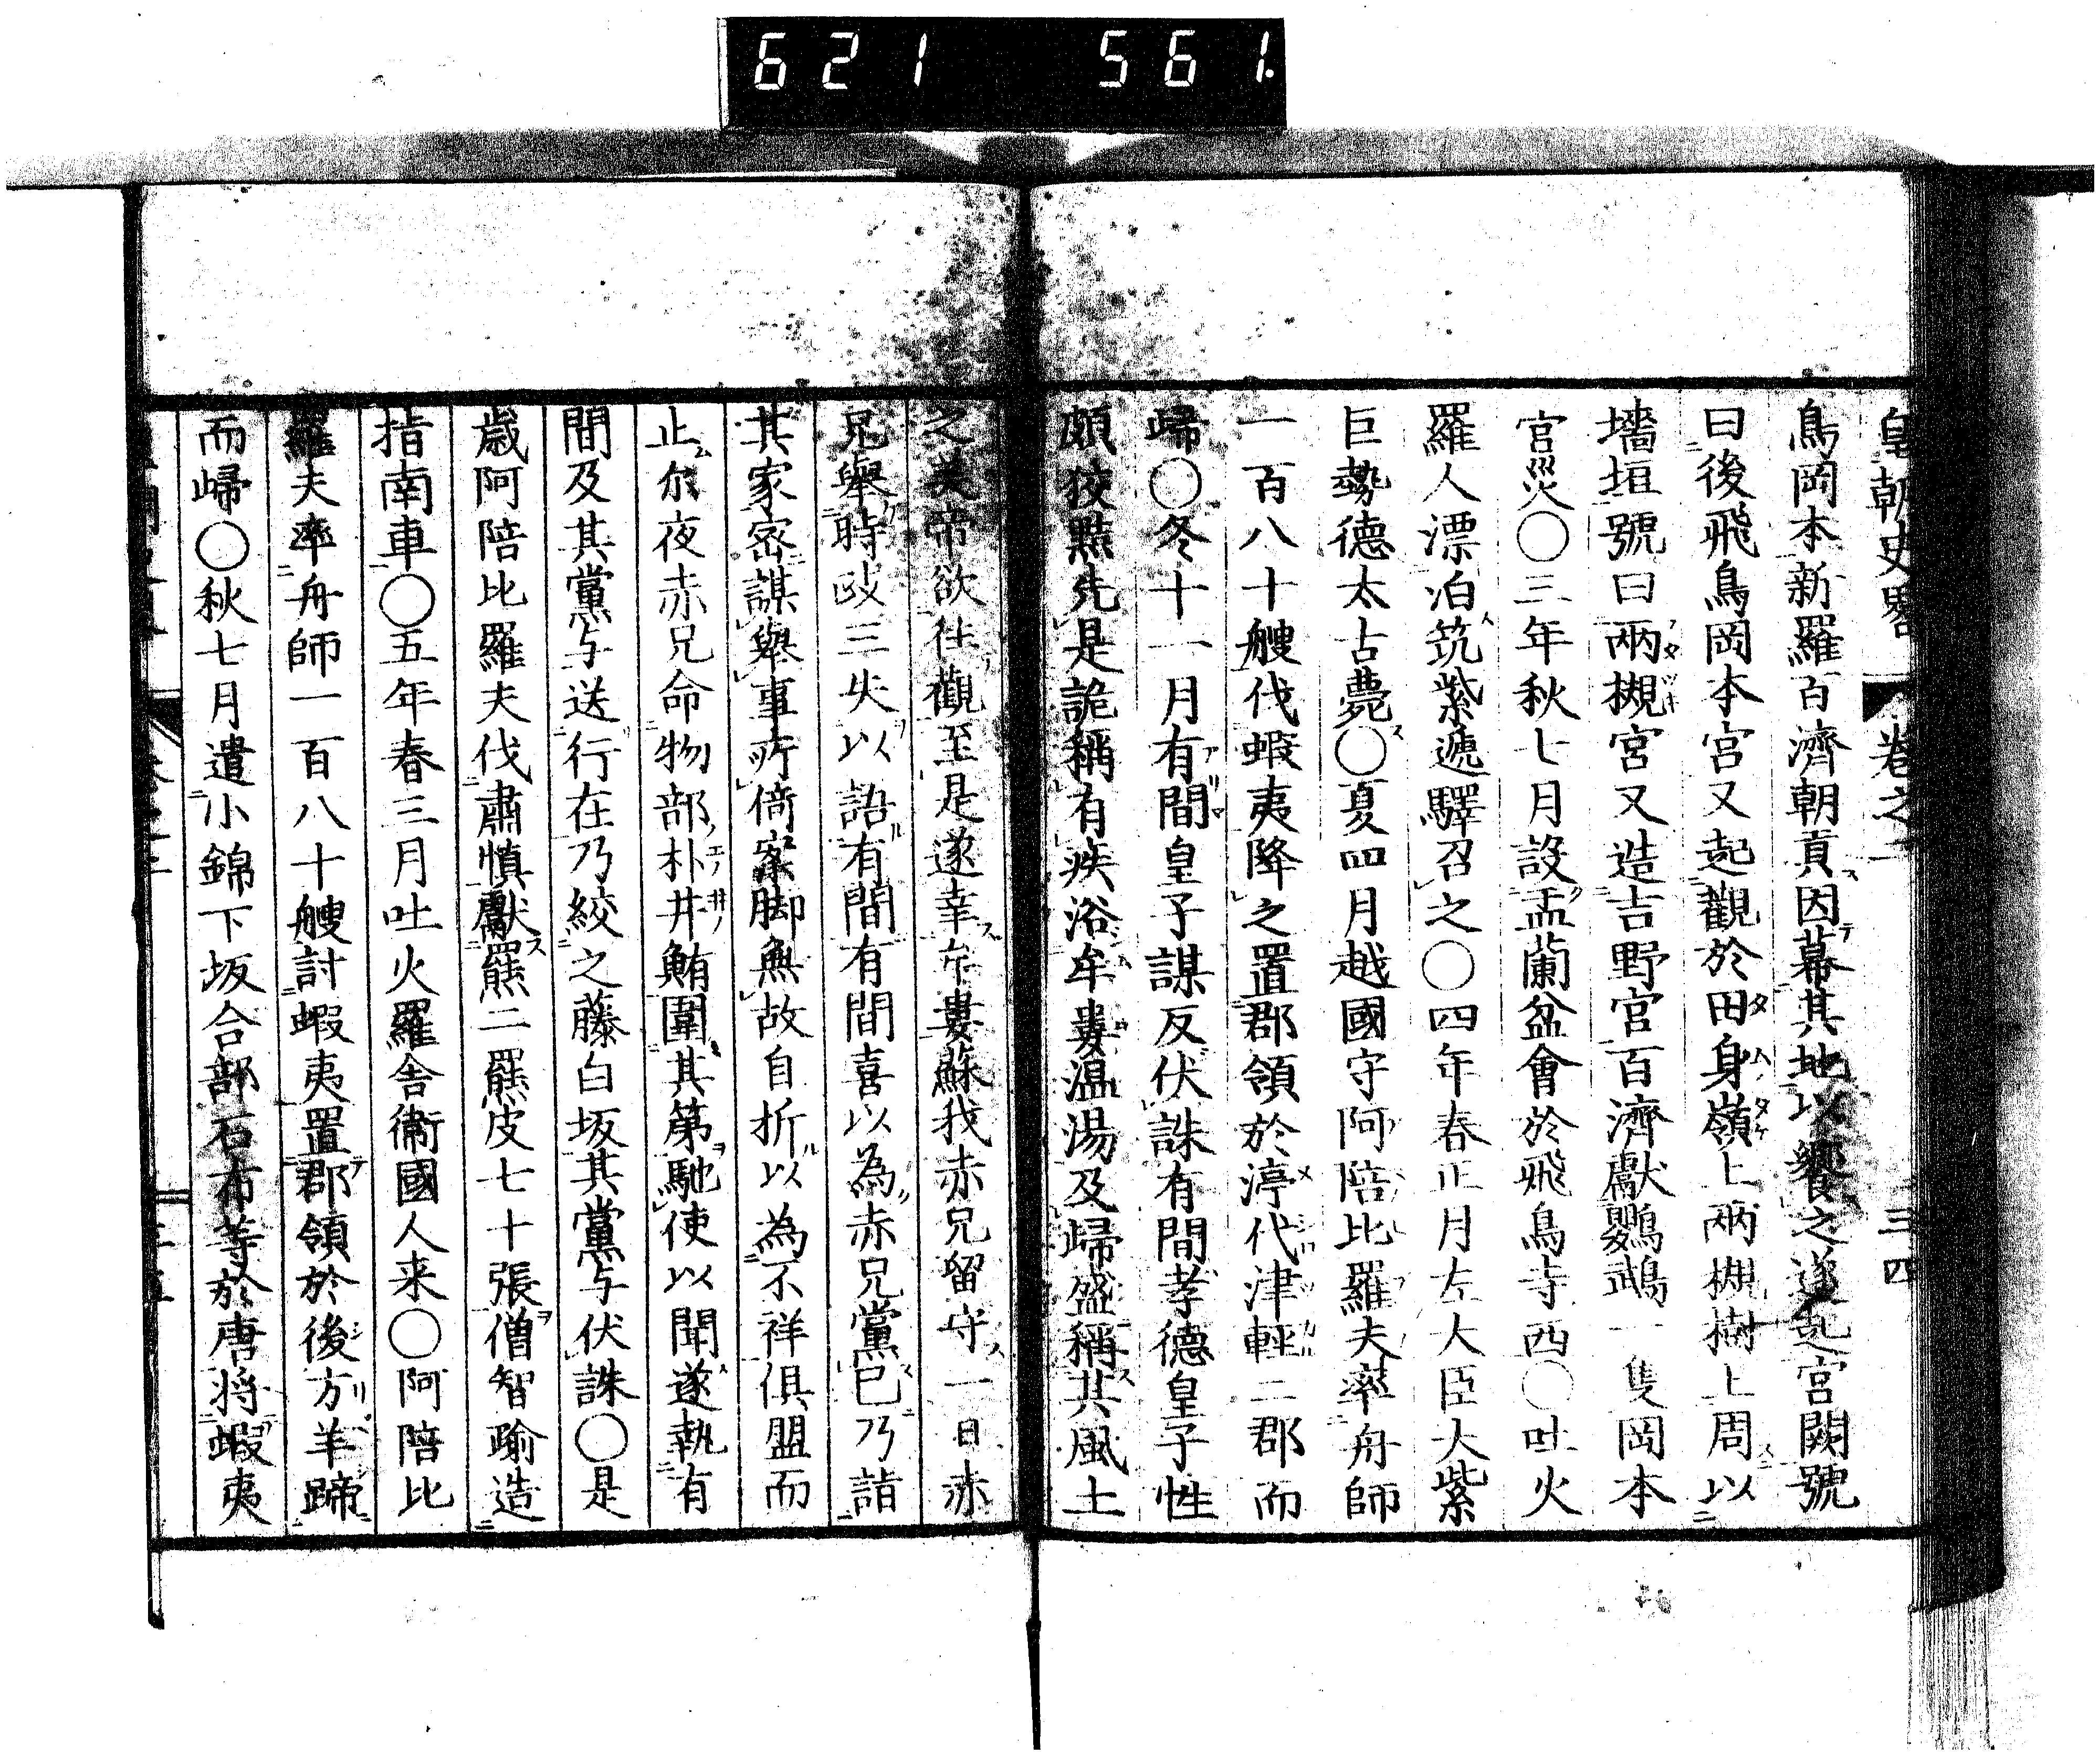 621 561.
皇朝史畧 卷之一 三四
鳥岡本新羅百濟朝貢因幕其地以饗之遂起宮闕號
曰後飛鳥岡本宮又起觀於田身嶺上兩槻樹上周以
墻垣號曰兩槻宮又造吉野宮百濟獻鸚鵡一隻岡本
宮災〇三年秋七月設盂蘭盆會於飛鳥寺西〇吐火
羅人漂泊筑紫遞驛召之〇四年春正月左大臣大紫
巨勢德太古薨〇夏四月越國守阿陪比羅夫率舟師
一百八十艘伐蝦夷降之置郡領於渟代津輕二郡而
歸〇冬十一月有間皇子謀反伏誅有間孝德皇子性
頗狡黠先是詭稱有疾浴牟婁温湯及歸盛稱其風土
之美帝欲往觀至是遂幸牟婁蘇我赤兄留守一日赤
兄舉時政三失以語有間有間喜以為赤兄黨已乃詣
其家密謀舉事所倚案脚無故自折以為不祥俱盟而
止尓夜赤兄命物部朴井鮪圍其第馳使以聞遂執有
間及其黨与送行在乃絞之藤白坂其黨与伏誅〇是
歲阿陪比羅夫伐肅慎獻羆二羆皮七十張僧智踰造
指南車〇五年春三月吐火羅舎衞國人来〇阿陪比
羅夫率舟師一百八十艘討蝦夷置郡領於後方羊蹄
而歸〇秋七月遣小錦下坂合部石布等於唐将蝦夷